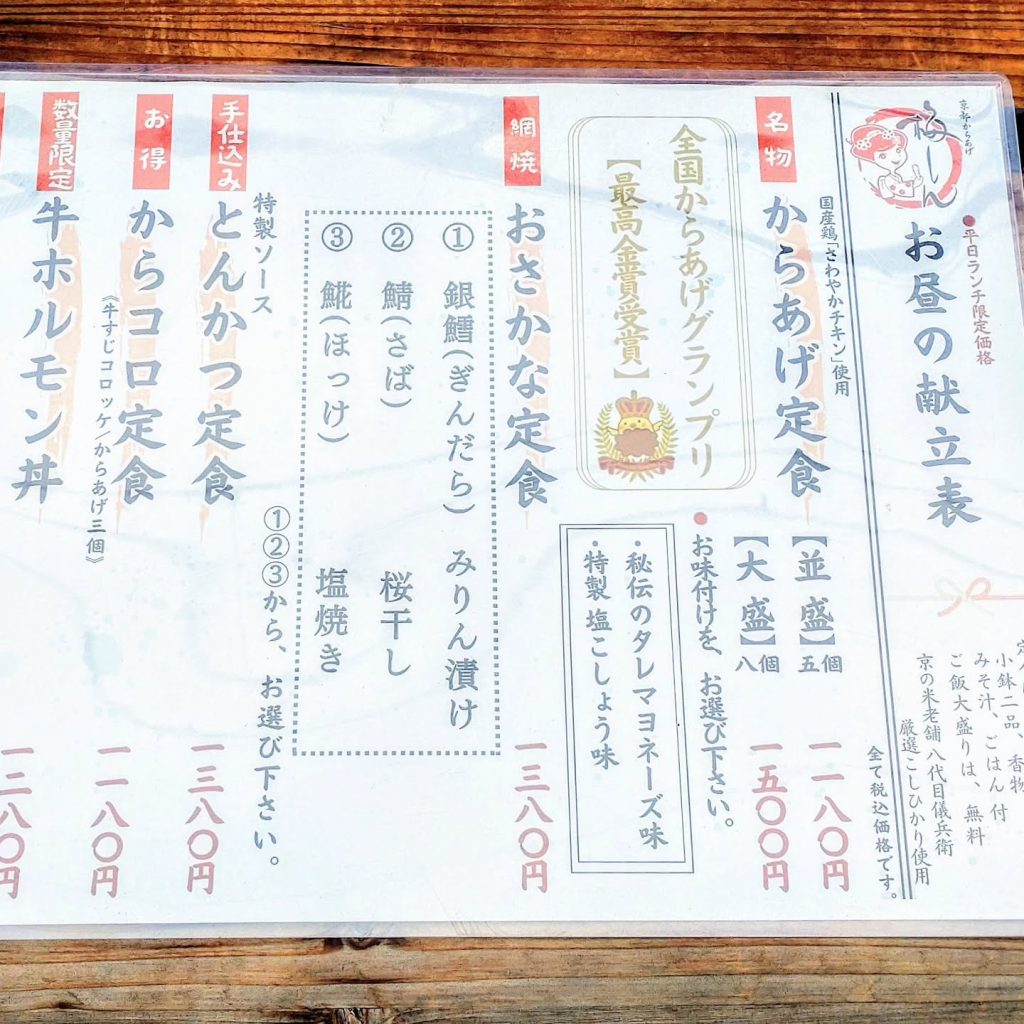 京都からあげ
梅しん
●平日ランチ限定価格
お昼の献立表
小鉢二品、香物
みそ汁、ごはん付
ご飯大盛りは、無料
京の米老舗 八代目儀兵衛
厳選こしひかり使用
全て税込価格です。
名物
国産鶏「さわやかチキン」使用
からあげ定食
【並盛】五個
一一八〇円
【大盛】八個
一五〇〇円
全国からあげグランプリ
【最高金賞受賞】
●お味付けを、お選び下さい。
・秘伝のタレマヨネーズ味
・特製 塩こしょう味
網焼
おさかな定食
一三八〇円
① 銀鱈(ぎんだら) みりん漬け
② 鯖(さば) 桜干し
③ 𩸽(ほっけ) 塩焼き
①②③から、お選び下さい。
手仕込み
特製ソース
とんかつ定食
一三八〇円
お得
からコロ定食
《牛すじコロッケ/からあげ三個》
一一八〇円
数量限定
牛ホルモン丼
一二八〇円